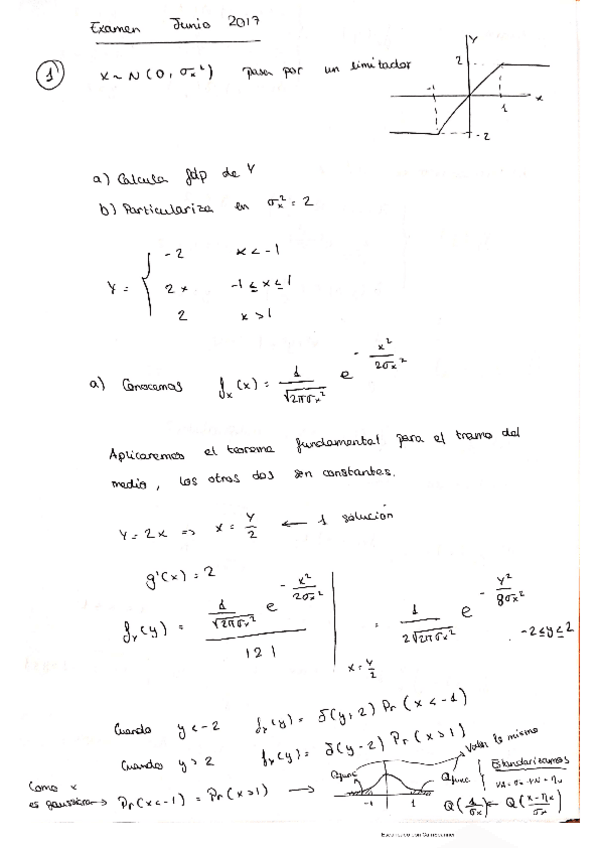 Examen Junio 2017
1) X ~ N(0, σx²) pasa por un limitador
Y
2
-1
1
x
-2
a) Calcula fdp de Y
b) Particulariza en σx² = 2
Y = { -2 x < -1
2x -1 ≤ x ≤ 1
2 x > 1
a) Conocemos fx(x) = 1/√(2πσx²) e^(-x²/(2σx²))
Aplicaremos el teorema fundamental para el tramo del
medio, los otros dos son constantes.
Y = 2x => x = Y/2 ← 1 solución
g'(x) = 2
fY(y) = (1/√(2πσx²) e^(-x²/(2σx²))) / |2| | x = Y/2 = 1/(2√(2πσx²)) e^(-Y²/(8σx²)) -2 ≤ y ≤ 2
Cuando y < -2 fY(y) = δ(y+2) Pr(x < -1)
Cuando y > 2 fY(y) = δ(y-2) Pr(x > 1)
Valen lo mismo
Como x
es gaussiana → Pr(x < -1) = Pr(x > 1) →
Qfunc
Qfunc
-1
1
Estandarizamos
Q(1/σx) ← Q((x-ηx)/σx)
Escaneado con CamScanner